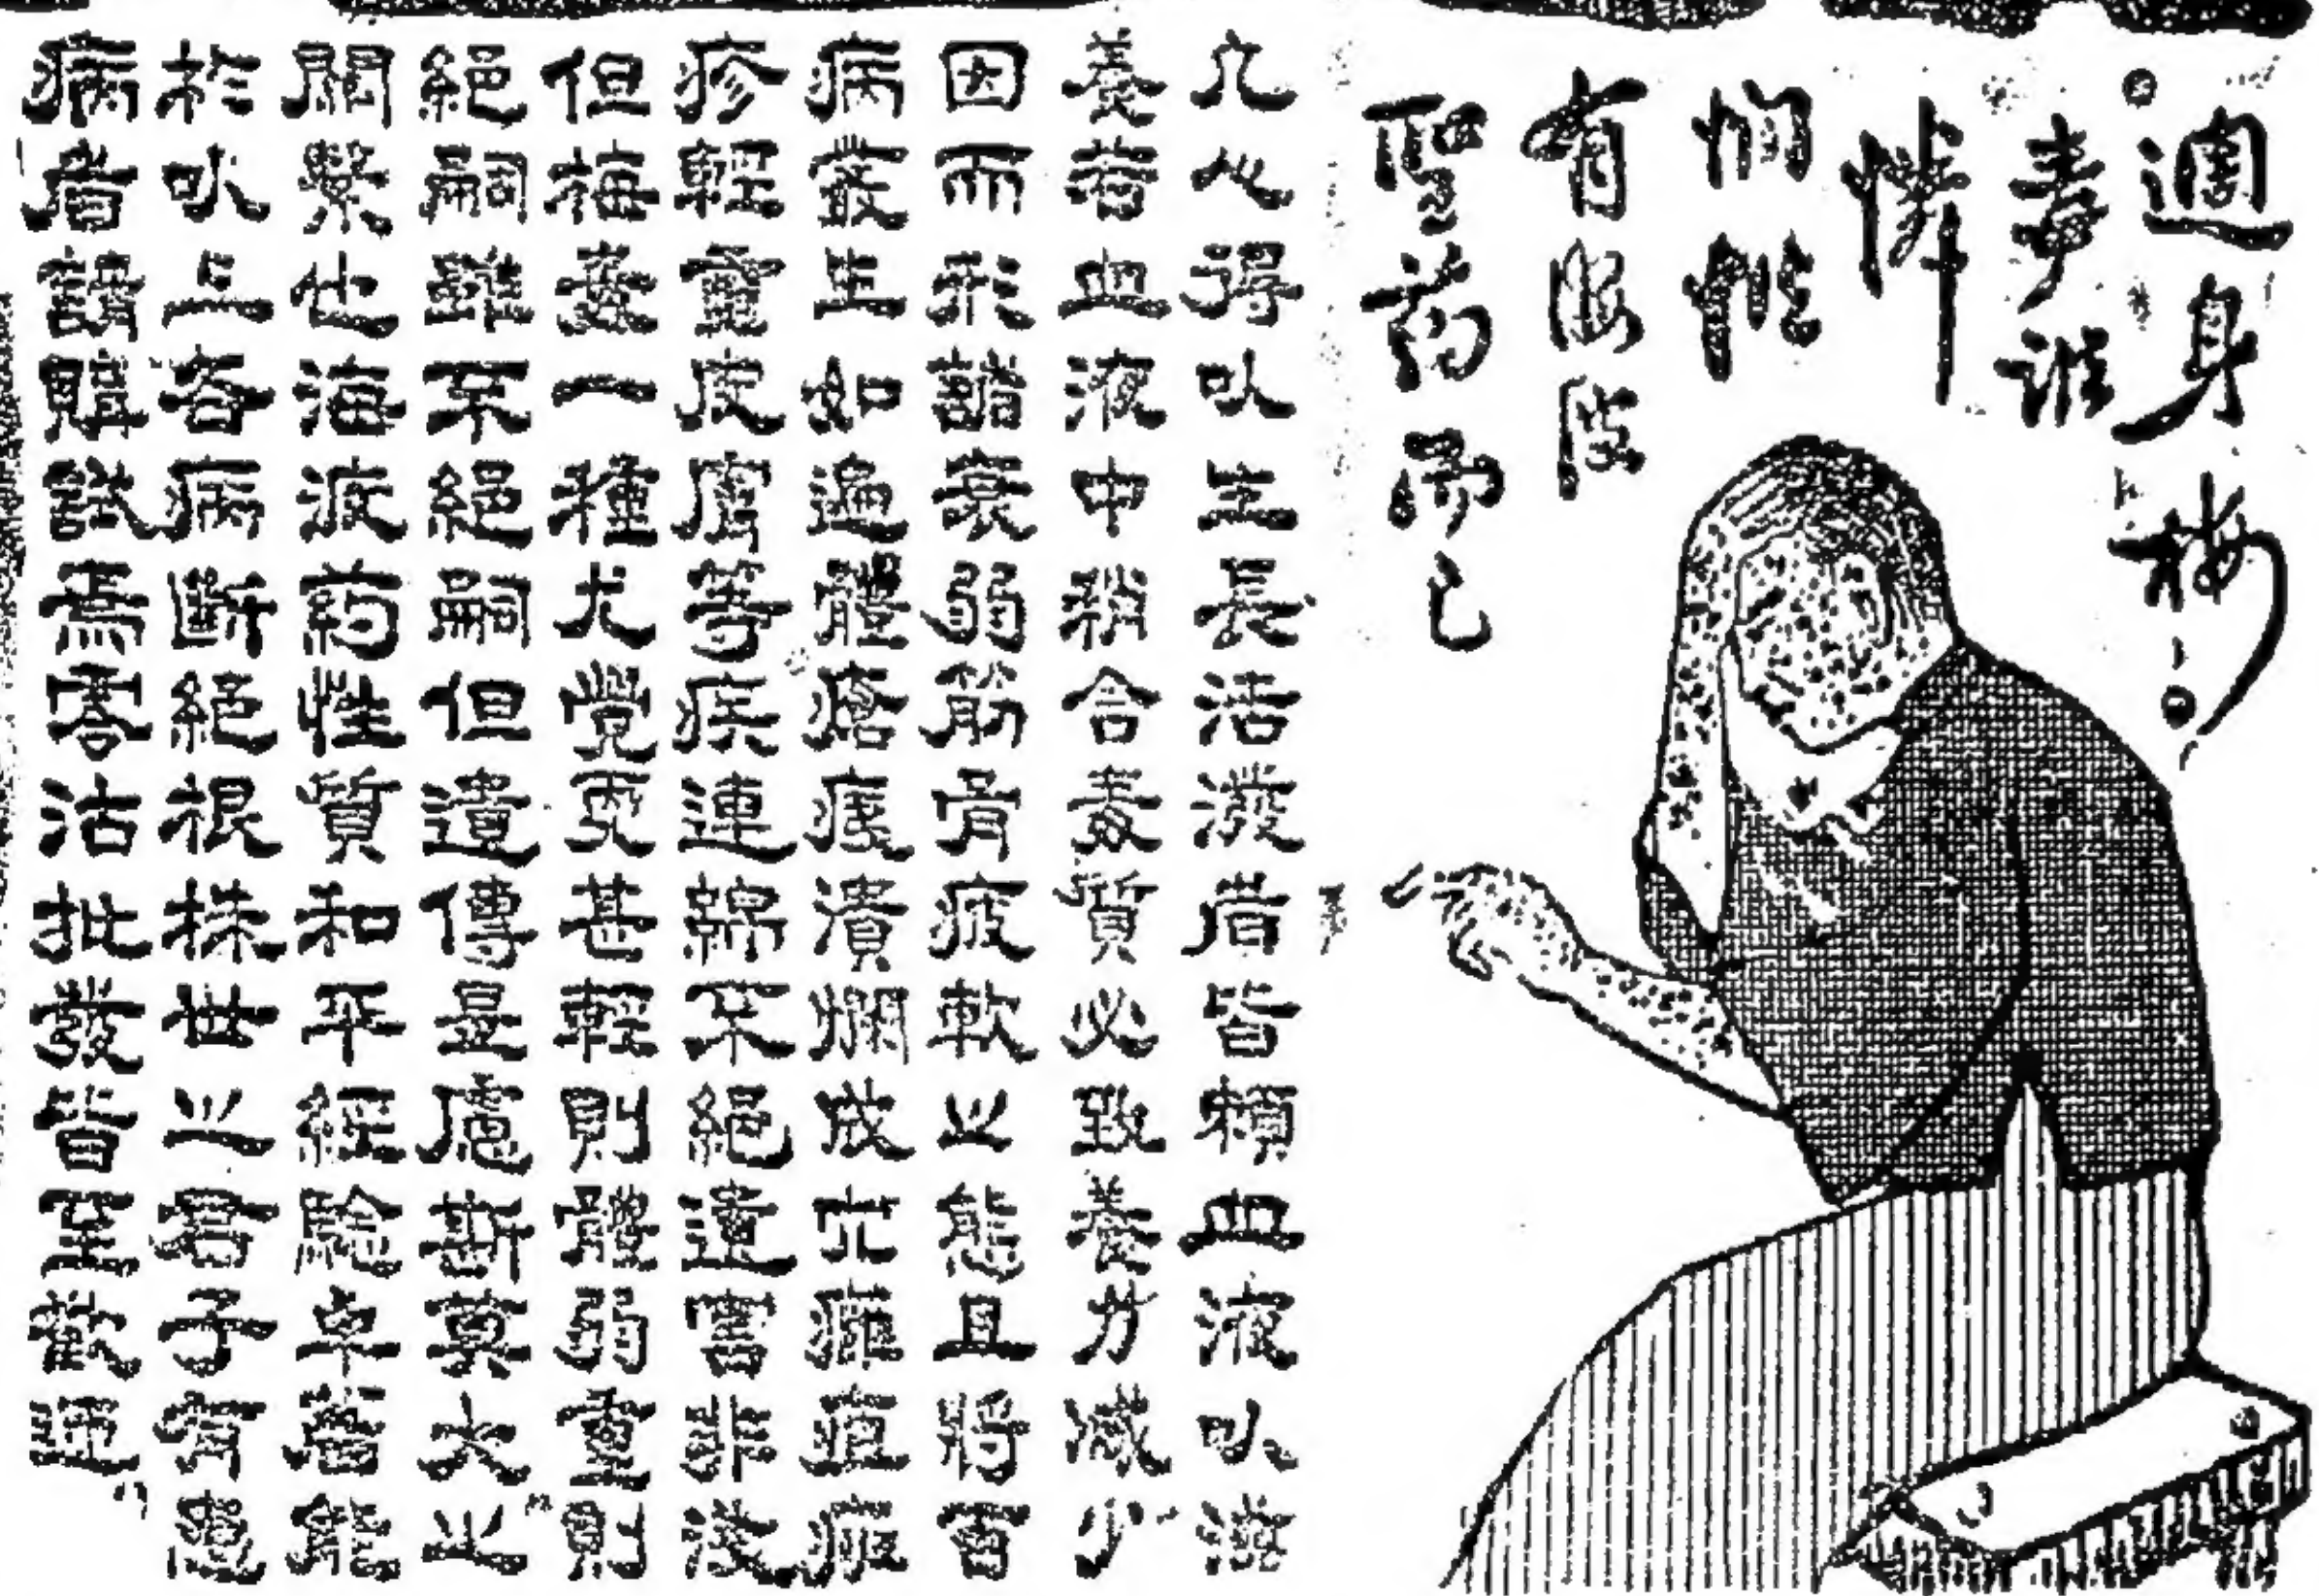 週身梅
毒誰
憐
惆悵
有海波
聖药而已
凢人得以生長活潑者皆賴血液以滋
養若血液中稍含毒質必致養力減少
因而形諸衰弱筋骨疲軟之態且將百
病叢生如遍體瘡痍潰爛成穴癰疽癍
疹輕重皮膚等疾連綿不絕遺害非淺
但梅毒一種尤覺更甚輕則體弱重則
絕嗣雖不絕嗣但遺傳是慮斯莫大之
關繫也海波药性質和平經驗卓著能
於以上各病斷絕根株世之君子有患
病者請購試焉零沽批發皆